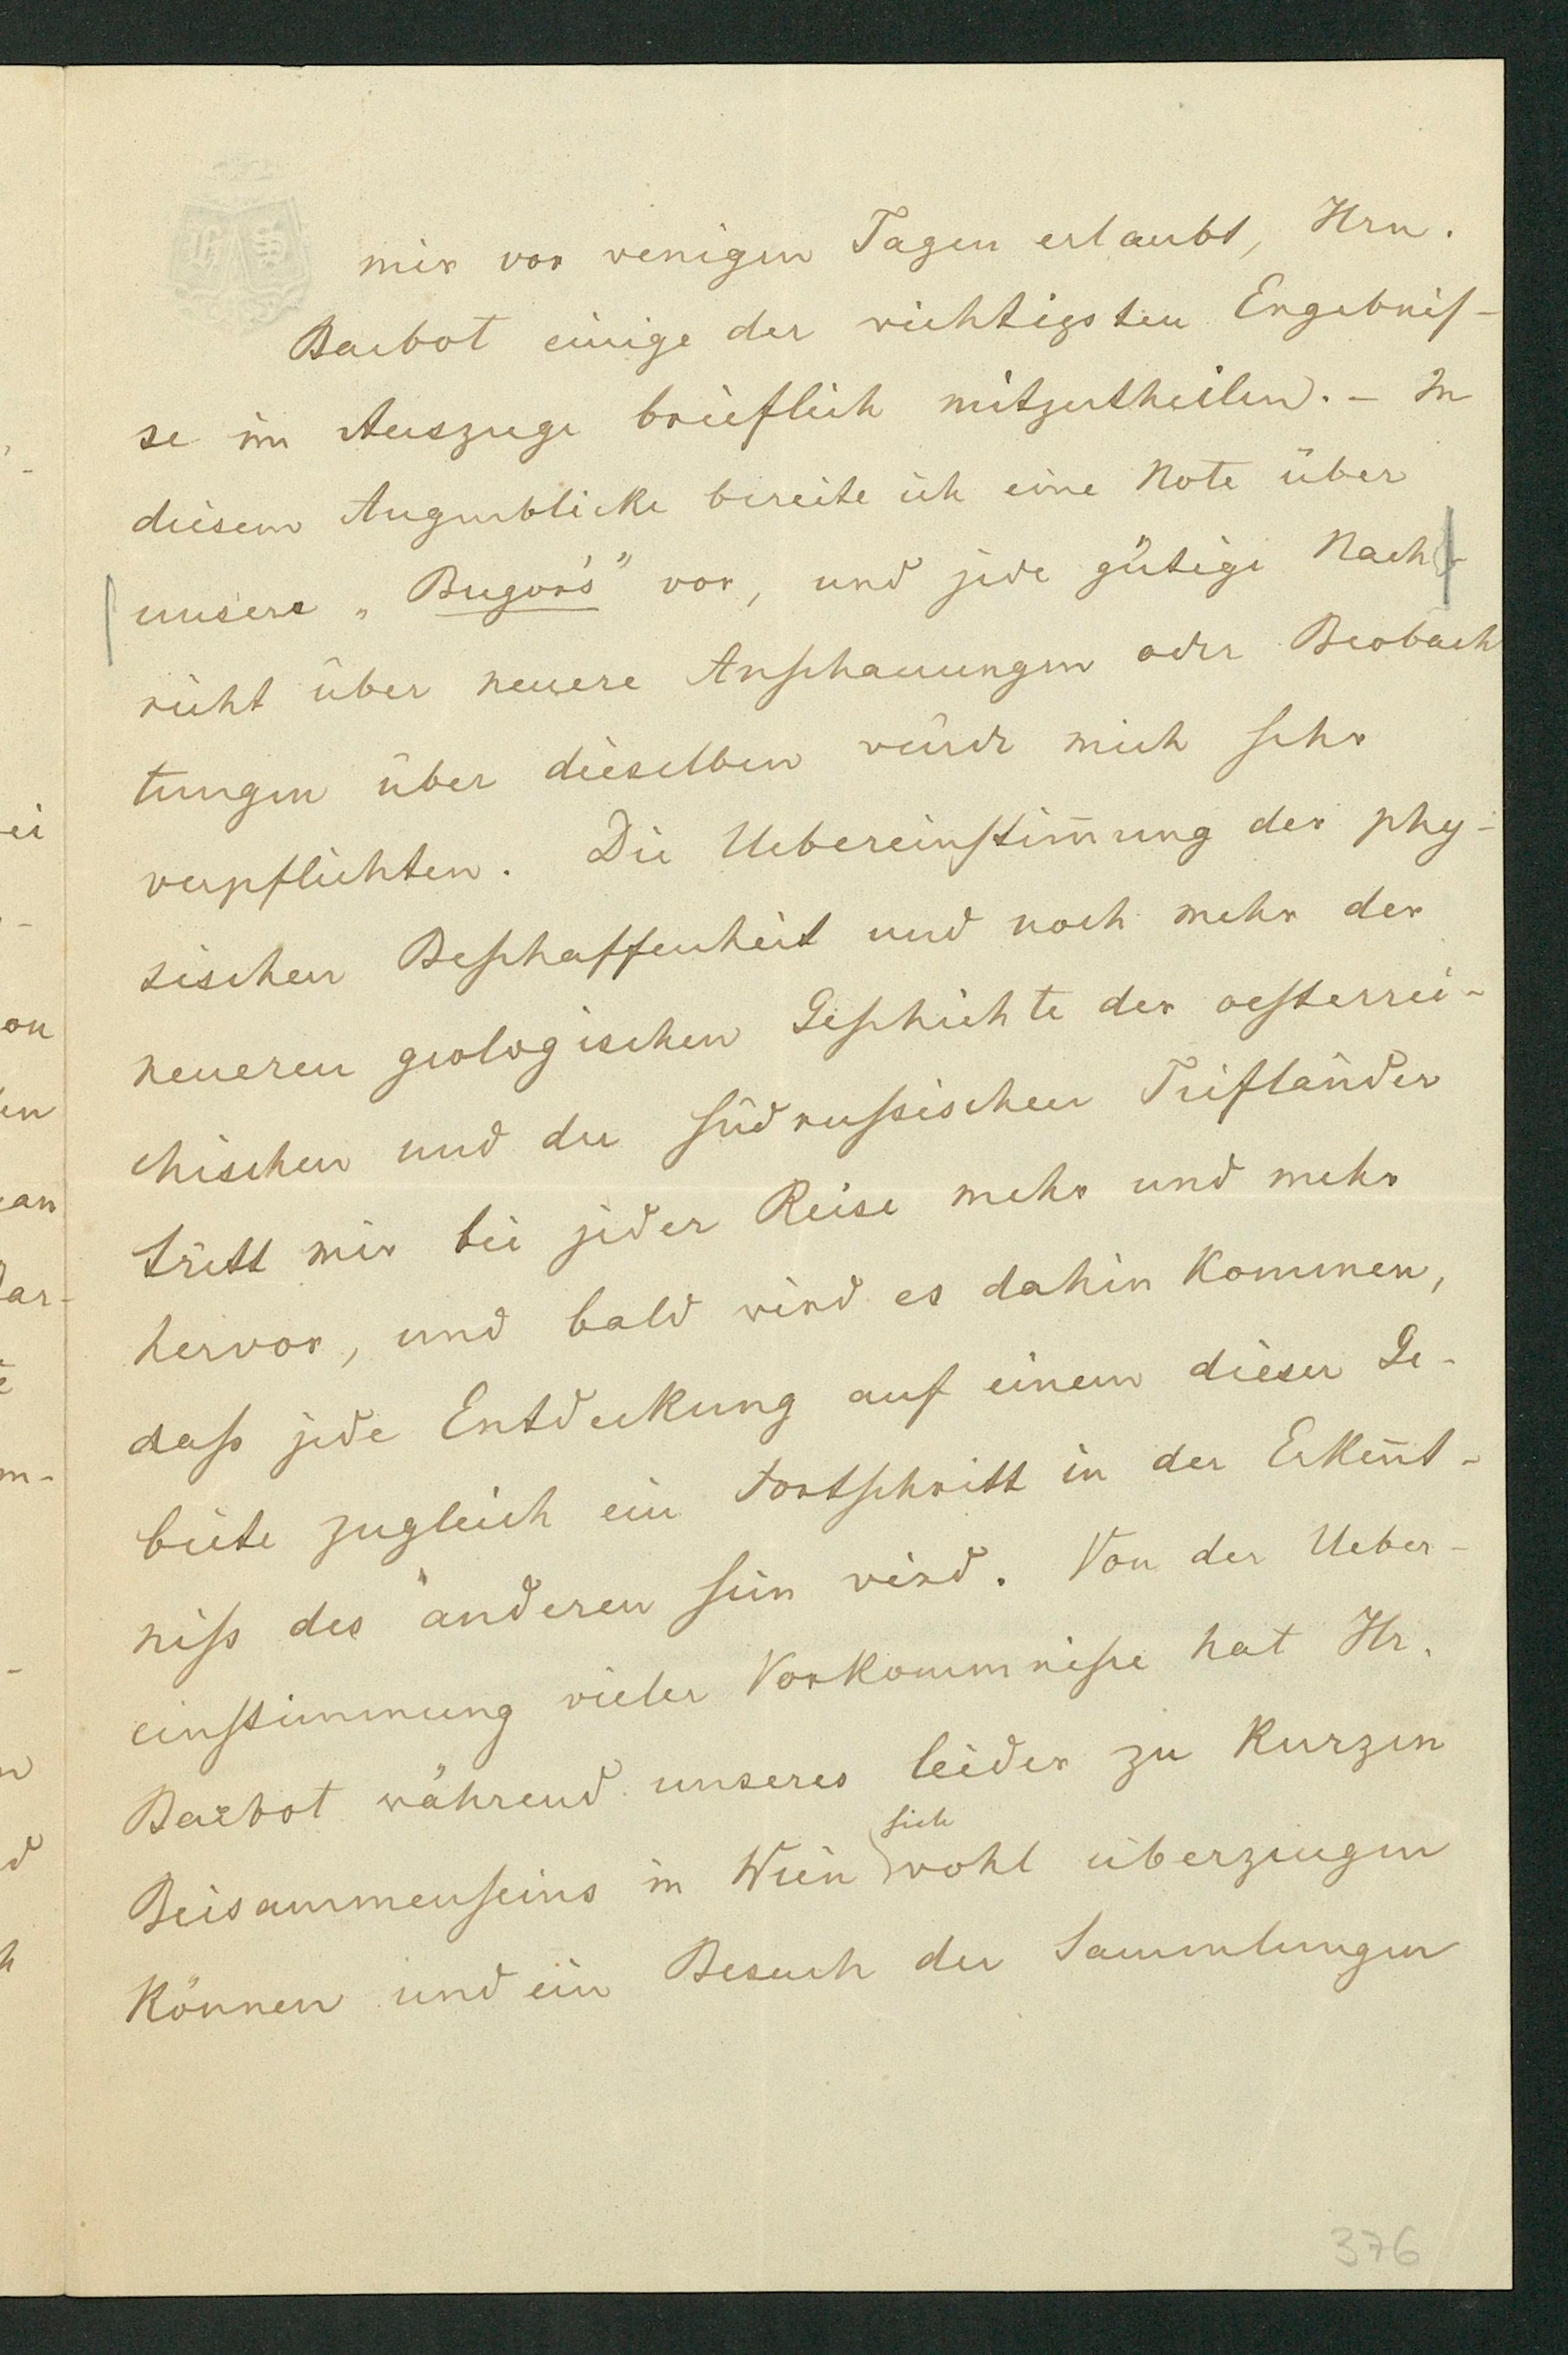 mir vor wenigen Tagen erlaubt, Hrn.
Barbot einige der wichtigsten Ergebnis-
se im Auszuge brieflich mitzutheilen. – In
diesem Augenblicke bereite ich eine Note über
unsere „Bugor's" vor, und jede gütige Nach-
richt über neuere Anschauungen oder Beobach
tungen über dieselben würde mich sehr
verpflichten. Die Uebereinstim̄ung der phy-
sischen Beschaffenheit und noch mehr der
neueren geologischen Geschichte der oesterrei-
chischen und der südrussischen Tiefländer
tritt mir bei jeder Reise mehr und mehr
hervor, und bald wird es dahin kommen,
dass jede Entdeckung auf einem dieser Ge-
biete zugleich ein Fortschritt in der Erken̄t-
niss des anderen sein wird. Von der Ueber-
einstimmung vieler Vorkommnisse hat Hr.
Barbot während unseres leider zu kurzen
Beisammenseins in Wien sich wohl überzeugen
können und ein Besuch der Sammlungen
376